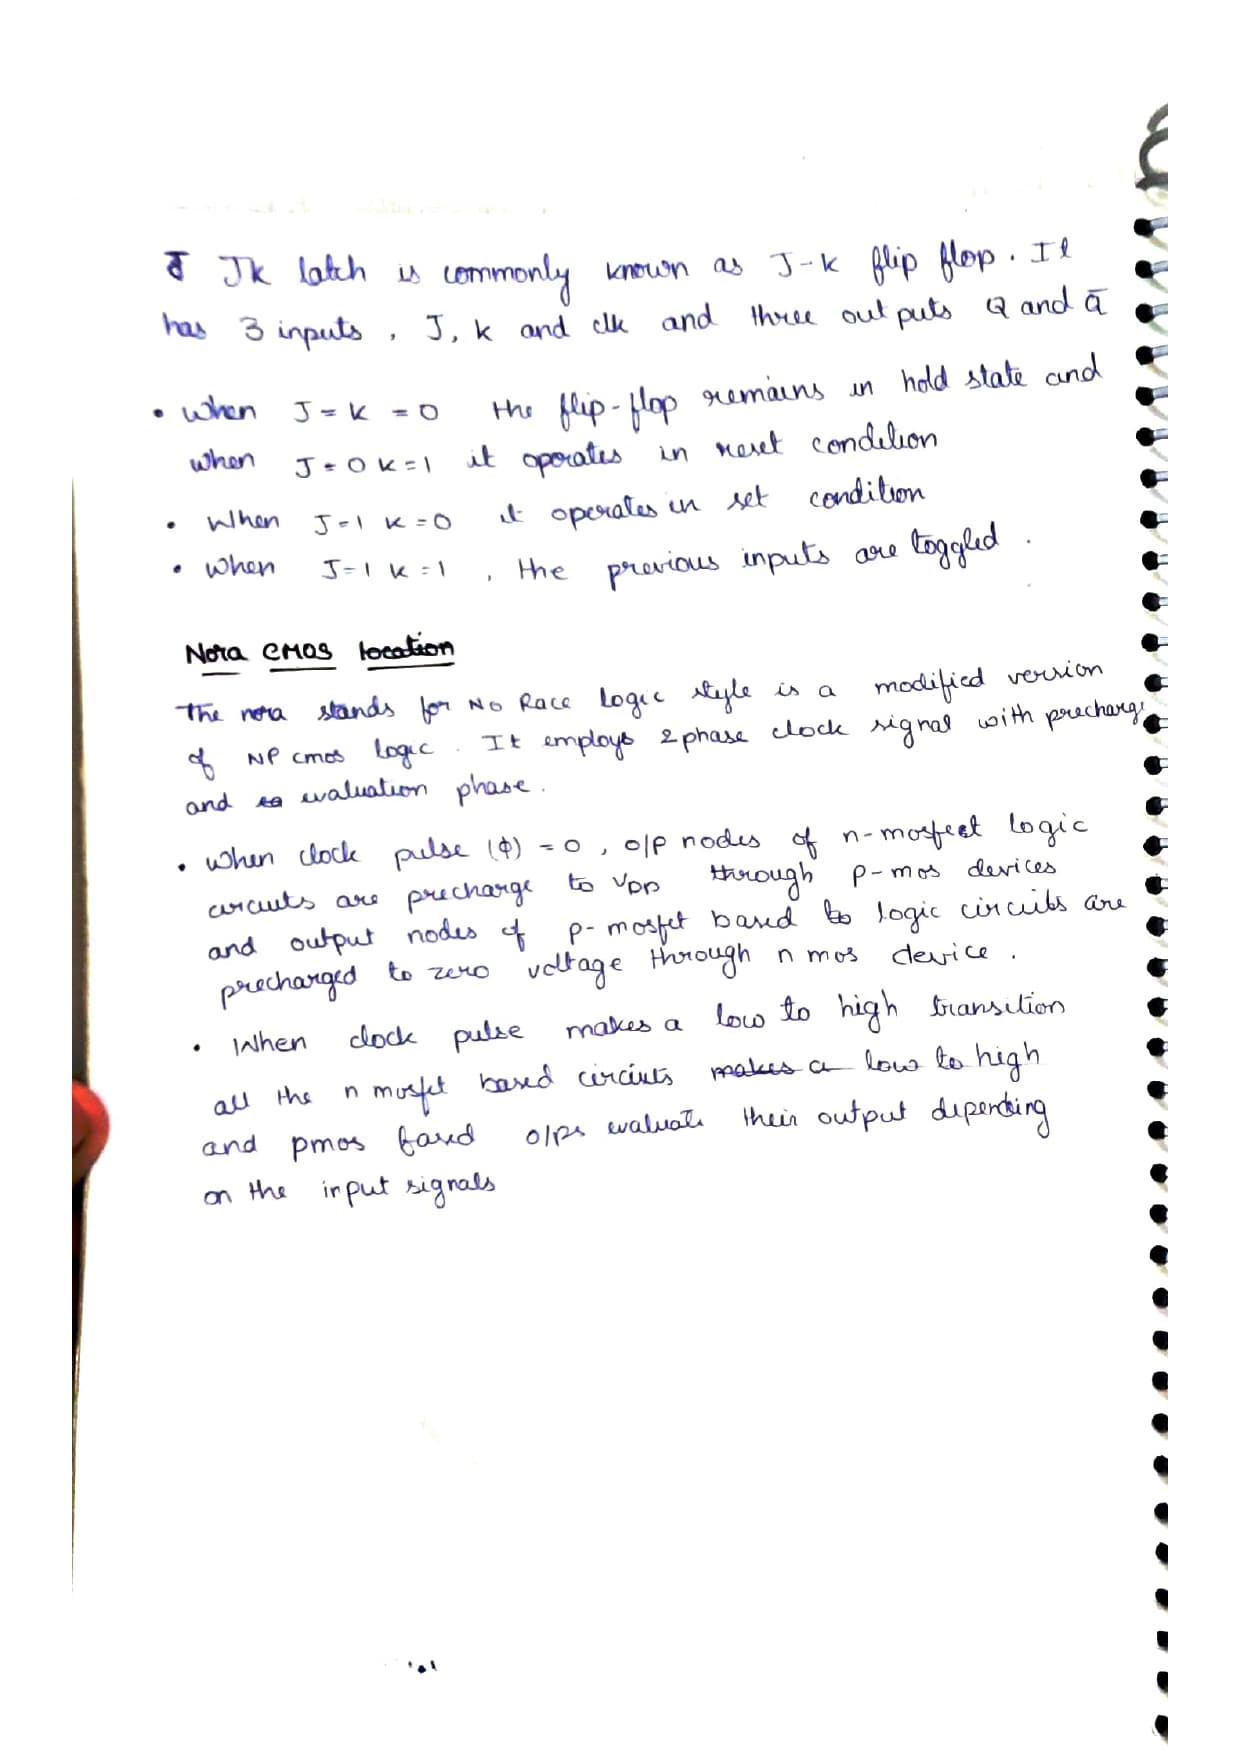 Jk latch is commonly known as J-k flip flop. It
has 3 inputs, J, k and clk and three outputs Q and Q̄
• When J = k = 0 the flip-flop remains in hold state and
when J = 0 k = 1 it operates in reset condition
• When J = 1 k = 0 it operates in set condition
• When J = 1 k = 1, the previous inputs are toggled.
Nora CMOS location
The nora stands for No Race logic style is a modified version
of NP cmos logic. It employs 2 phase clock signal with precharge
and evaluation phase.
• When clock pulse (ϕ) = 0, o/p nodes of n-mosfeet logic
circuits are precharge to VDD through p-mos devices
and output nodes of p-mosfet based logic circuits are
precharged to zero voltage through n mos device.
• When clock pulse makes a low to high transition
all the n mosfet based circuits makes a low to high
and pmos based o/ps evaluate their output depending
on the input signals